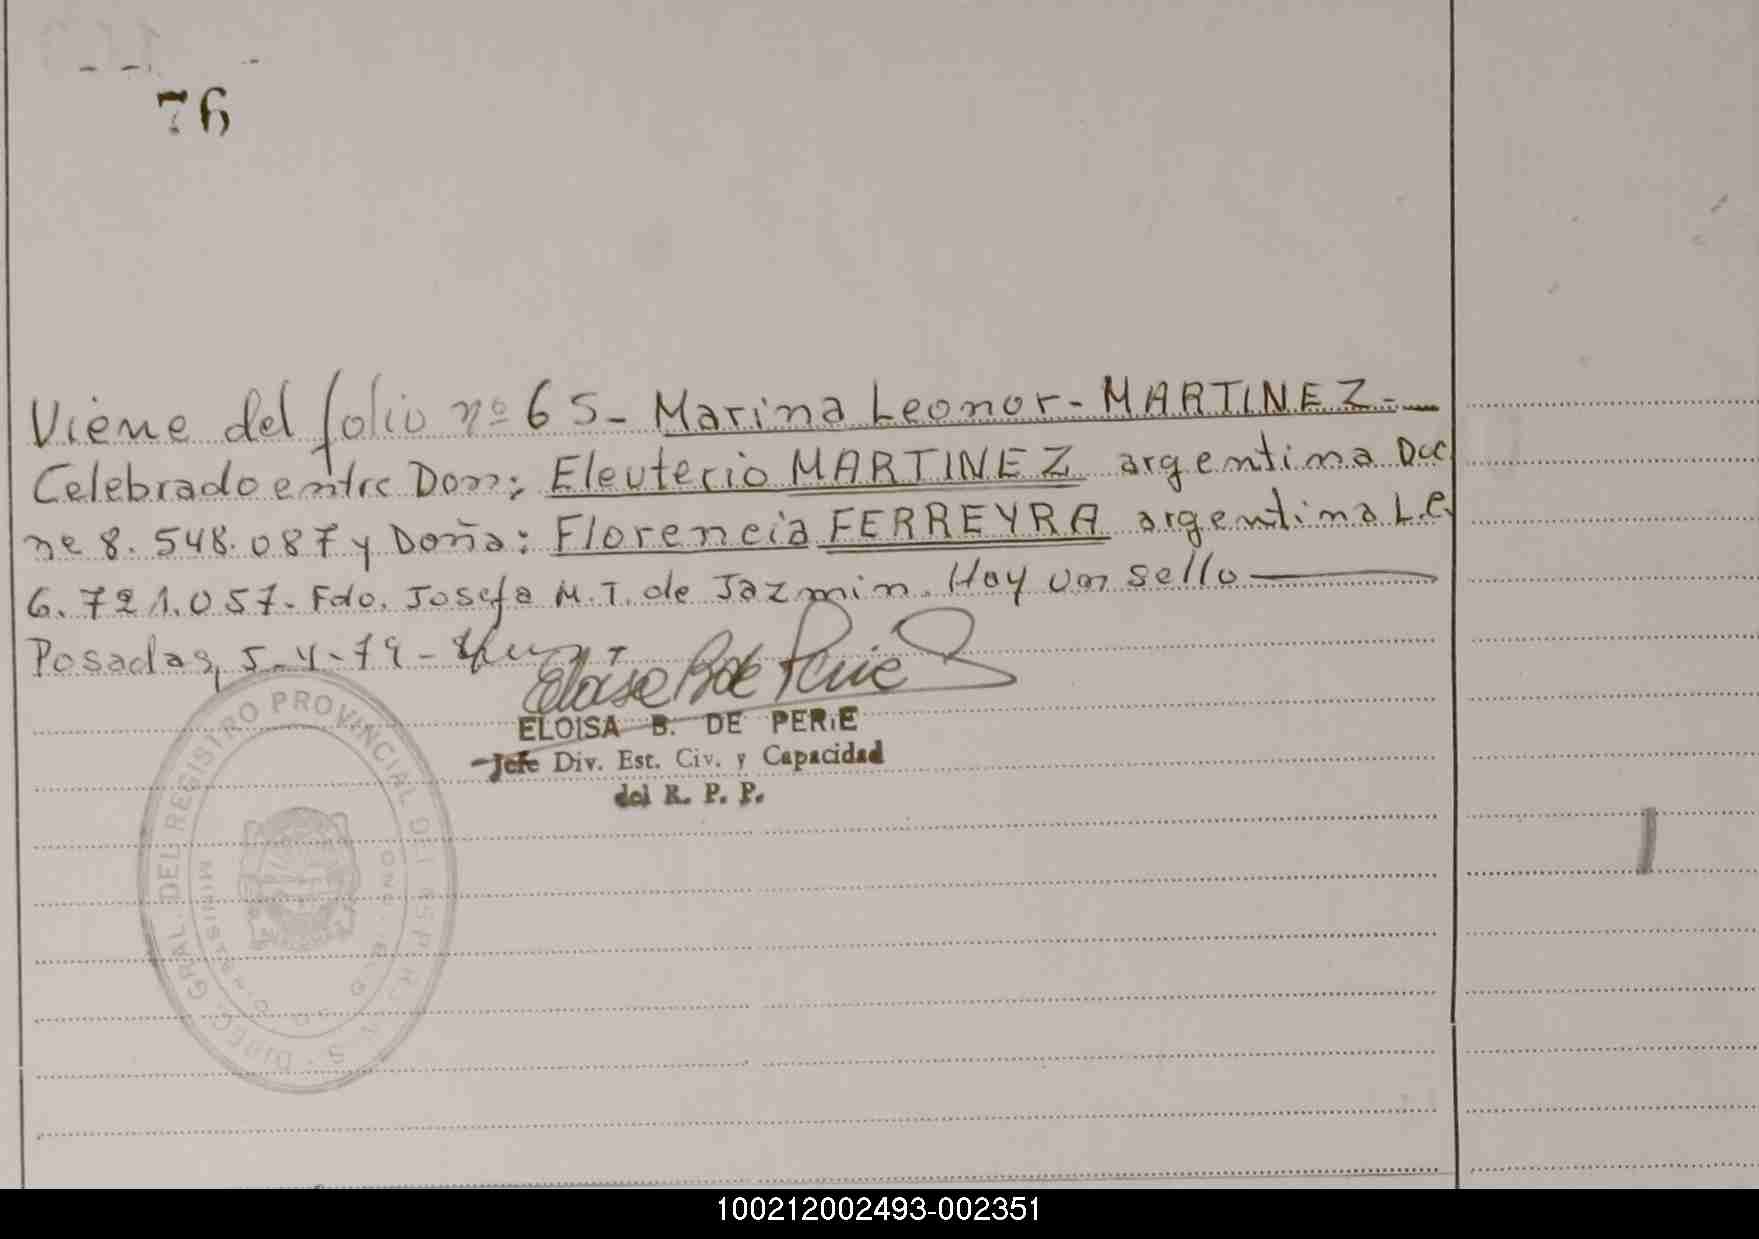 76
Viene del folio nº 65- Marina Leonor- MARTINEZ.-
Celebrado entre Don: Eleuterio MARTINEZ argentina Doc
nº 8.548.087 y Doña: Florencia FERREYRA argentina L.C.
6.721.057. Fdo. Josefa M. T. de Jazmin. Hay un sello
Posadas, 5-4-79-
ELOISA B. DE PERIE
Jefe Div. Est. Civ. y Capacidad
del R. P. P.
DIREC. GRAL. DEL REGISTRO PROVINCIAL DE
100212002493-002351